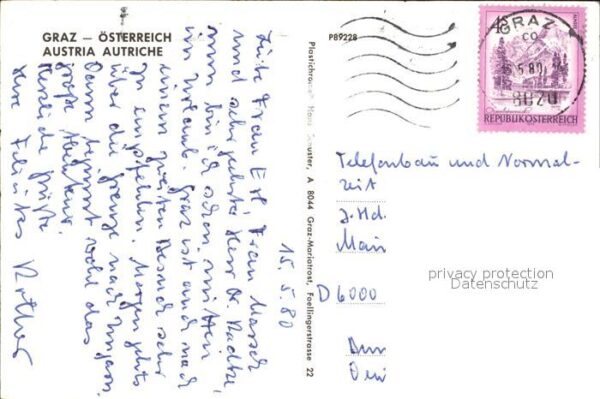 GRAZ — ÖSTERREICH
AUSTRIA AUTRICHE
P89228
15.5.80
Liebe Frau Erl, Frau Masch
und sehr geehrter Herr
nun bin ich schon mitten
im Urlaub. Graz ist auch nach
einem zweiten Besuch sehr
zu empfehlen. Morgen geht's
über die Grenze nach Ungarn.
Dann beginnt wohl das
große Abenteuer.
Herzliche Grüße
Ihre Felicitas
Plastichrome Hans Schuster, A 8044 Graz-Mariatrost, Foellingerstrasse 22
GRAZ
5.80
8020
REPUBLIK ÖSTERREICH
Telefonbau und Normal-
zeit
z.Hd.
Main
D 6000
privacy protection
Datenschutz